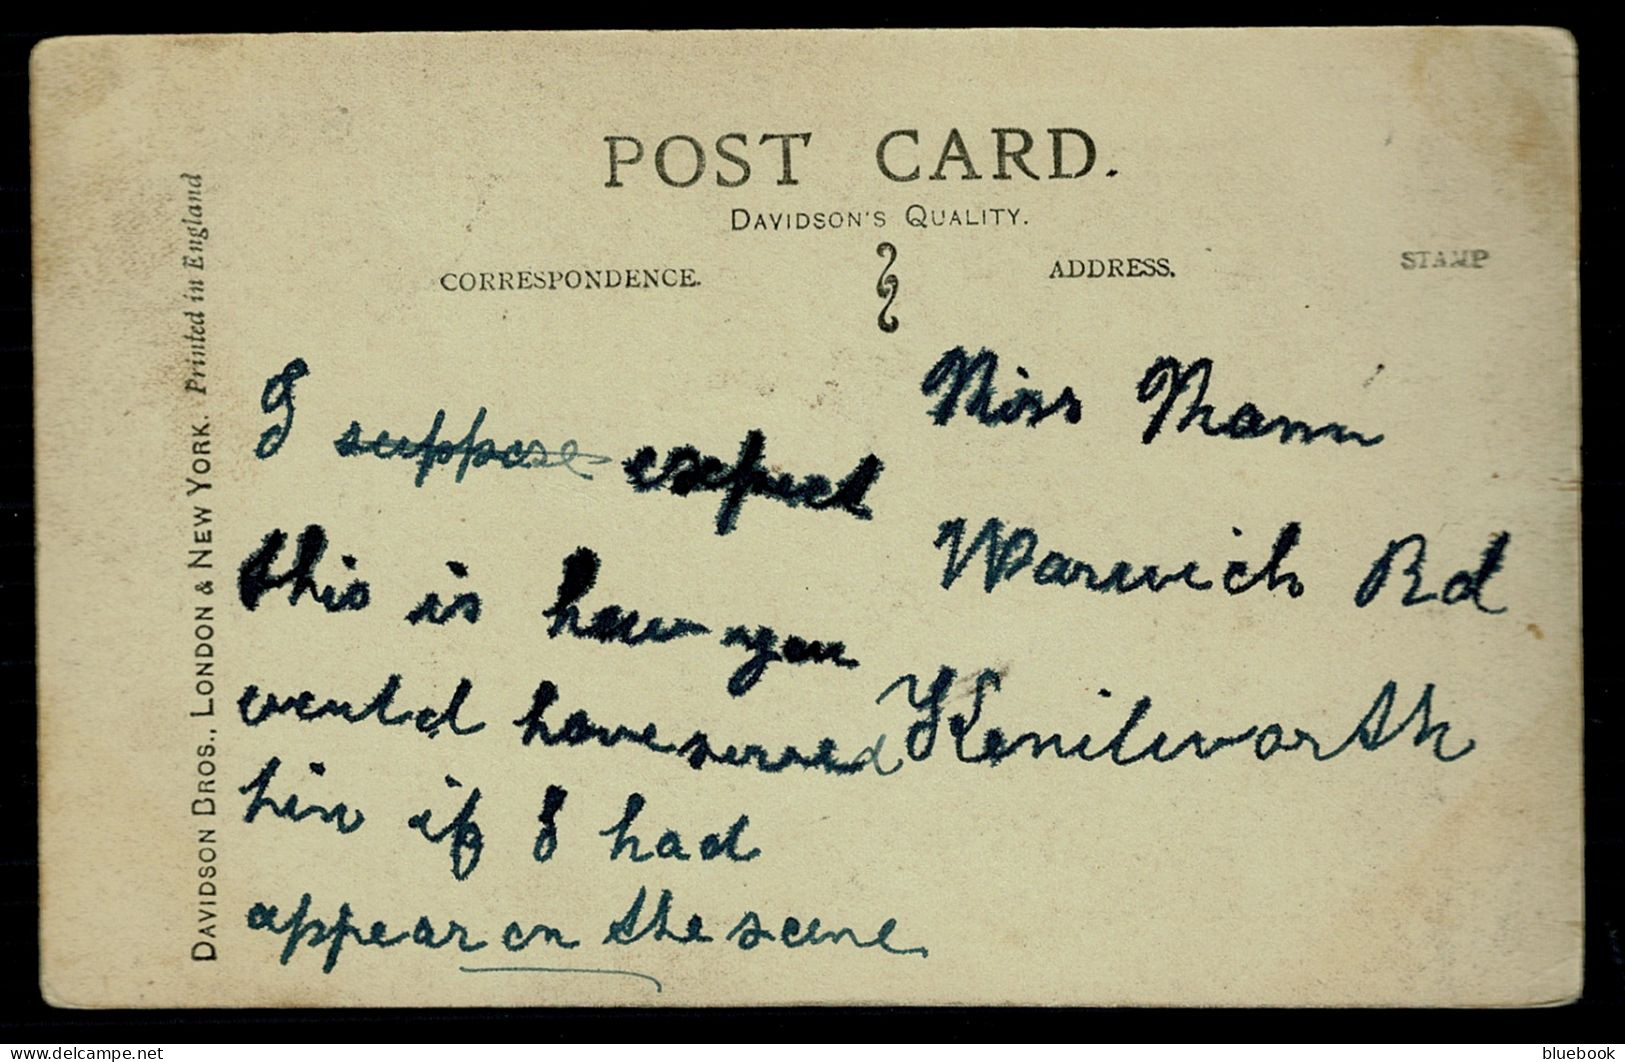 POST CARD.
DAVIDSON'S QUALITY.
CORRESPONDENCE.
ADDRESS.
STAMP
DAVIDSON BROS., LONDON & NEW YORK. Printed in England
I suppose expect
this is how you
would have served
him if I had
appear on the scene
Miss Mann
Warwick Rd
Kenilworth
delcampe.net
bluebook